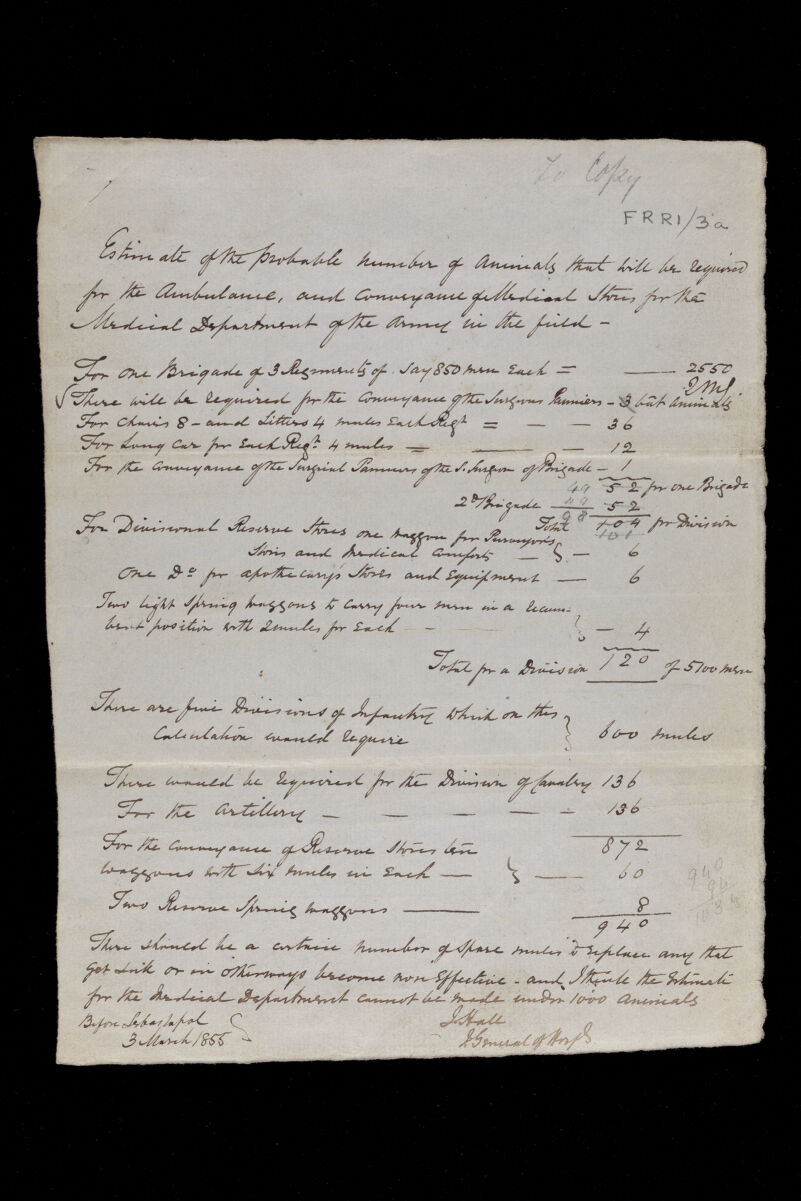 To Copy
FRR1/3a
Estimate of the probable number of Animals that will be required
for the Ambulance, and Conveyance of Medical Stores for the
Medical Department of the Army in the field -
For one Brigade of 3 Regiments of Say 850 men Each = 2550
There will be required for the Conveyance of the Surgeons Panniers - 3 bât Animals
For Chairs 8 - and Litters 4 mules Each Regt = - - 36
For Long Car for Each Regt 4 mules = - 12
For the Conveyance of the Surgical Panniers of the S. Surgeon of Brigade - 1
49 52 for one Brigade
2d Brigade 49 52
98 Total 104 for Division
101
For Divisional Reserve Stores one waggon for Purveyors
Stores and Medical Comforts - } - 6
One Do for apothecary's Stores and Equipment - 6
Two light Spring waggons to Carry four men in a recum-
bent position with 2 mules for Each - } - 4
Total for a Division 120 of 5100 men
There are five Divisions of Infantry which on this
Calculation would require } 600 mules
There would be required for the Division of Cavalry 136
For the Artillery - - - - - 136
872
For the Conveyance of Reserve Stores ten
waggons with Six mules in Each - } - 60
Two Reserve Spring waggons - 8
940
940
There should be a certain number of Spare mules to replace any that
get Sick or in otherways become non Effective - and I think the Estimate
for the Medical Department cannot be made under 1000 Animals
Before Sebastapol
3 March 1855
J. Hall
I General of Hosps